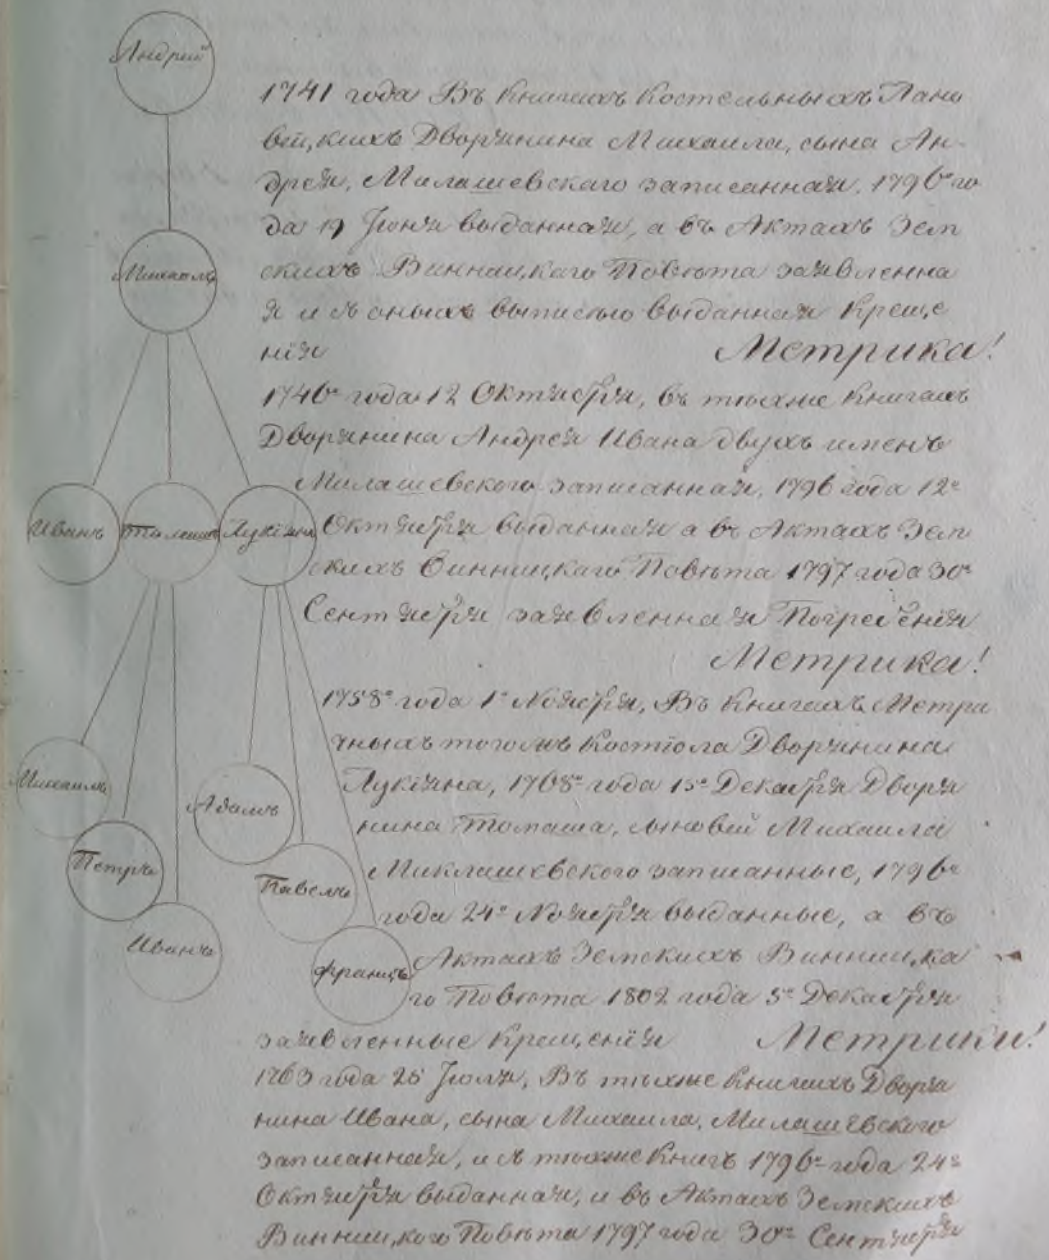 Андрей
Михаилъ
Иванъ Томашъ Лукіянъ
Михаилъ
Петръ
Иванъ
Адамъ
Павелъ
Францъ
1741 года Въ Книгахъ Костельныхъ
Дворянина Михаила, сына Ан-
дрея, Милашевскаго записанная, 1796го го
да 19 Іюня выданная, а въ Актахъ Зем
скихъ Винницкаго Повѣта заявленна
я и съ оныхъ выписью выданная Креще
нія Метрика!
1746го года 12 Октября, въ тѣхже Книгахъ
Дворянина Андрея Ивана двухъ именъ
Милашевского записанная, 1796 года 12го
Октября выданная а въ Актахъ Зем
скихъ Винницкаго Повѣта 1797 года 30го
Сентября заявленная Погребенія
Метрика!
1758го года 1го Ноября, Въ Книгахъ Метри
чныхъ тогожъ Костіола Дворянина
Лукіяна, 1768го года 15го Декабря Дворя
нина Томаша, сыновей Михаила
Миклашевского записанные, 1796го
года 24го Ноября выданные, а въ
Актахъ Земскихъ Винницка
го Повѣта 1802 года 5го Декабря
заявленные Крещенія Метрики!
1763 года 25 Іюля, Въ тѣхже Книгахъ Дворя
нина Ивана, сына Михаила, Милашевского
записанная, и съ тѣхже Книгъ 1796го года 24го
Октября выданная, и въ Актахъ Земскихъ
Винницкого Повѣта 1797 года 30го Сентября